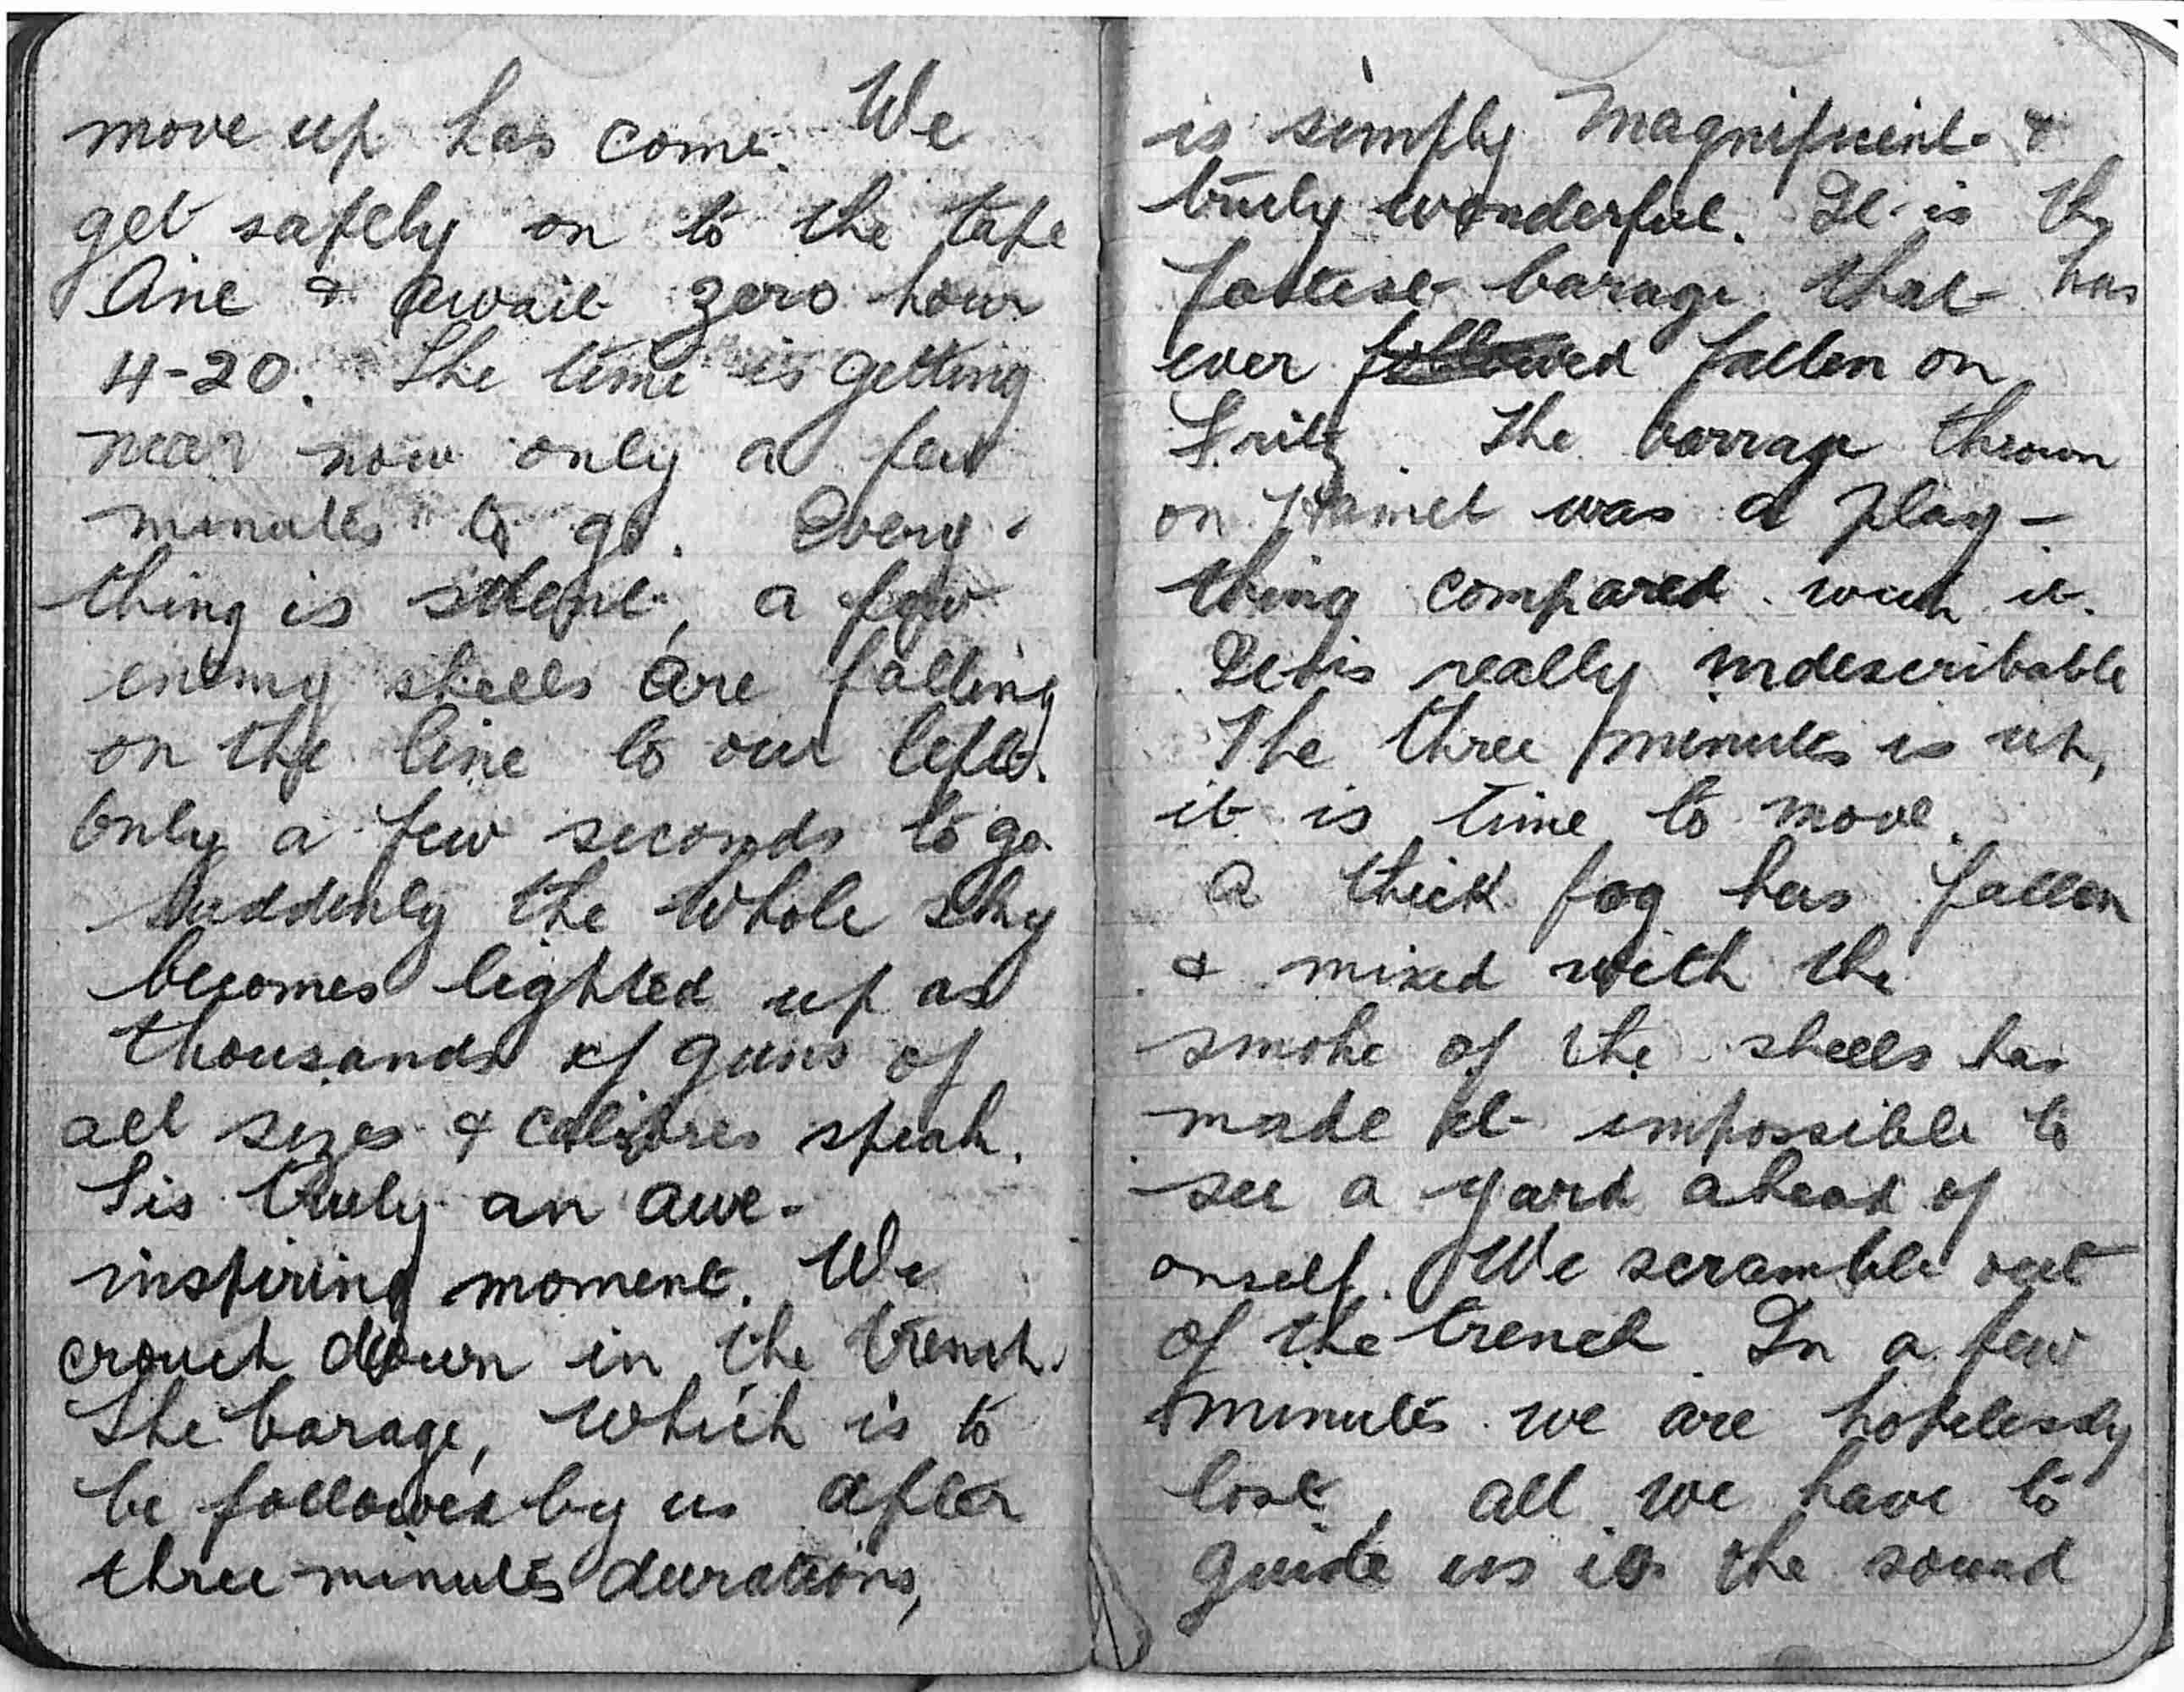 move up has come. We
get safely on to the tape
line & await zero hour
4-20. The time is getting
near now only a few
minutes to go. Every-
thing is silent, a few
enemy shells are falling
on the line to our left.
Only a few seconds to go
Suddenly the whole sky
becomes lighted up as
thousands of guns of
all sizes & calibres speak.
Tis truly an awe-
inspiring moment. We
crouch down in the trench.
The barage, which is to
be followed by us after
three minutes durations,
is simply magnificient &
truly wonderful. It is the
fastest barage that has
ever followed fallen on
Fritz. The barrage thrown
on Hamel was a play-
thing compared with it.
It is really indescribable
The three minutes is up,
it is time to move.
A thick fog has fallen
& mixed with the
smoke of the shells has
made it impossible to
see a yard ahead of
onself. We scramble out
of the trench. In a few
minutes we are hopelessly
lost, all we have to
guide us is the sound